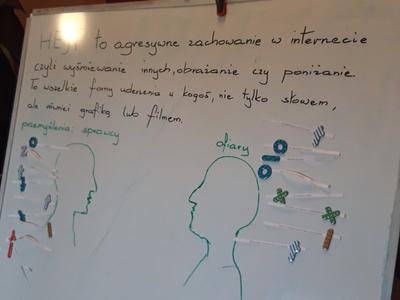 HEJT to agresywne zachowanie w internecie
czyli wyśmiewanie innych, obrażanie czy poniżanie.
To wszelkie formy uderzenia w kogoś, nie tylko słowem,
ale również grafiką lub filmem.
przemyślenia: sprawcy
ofiary